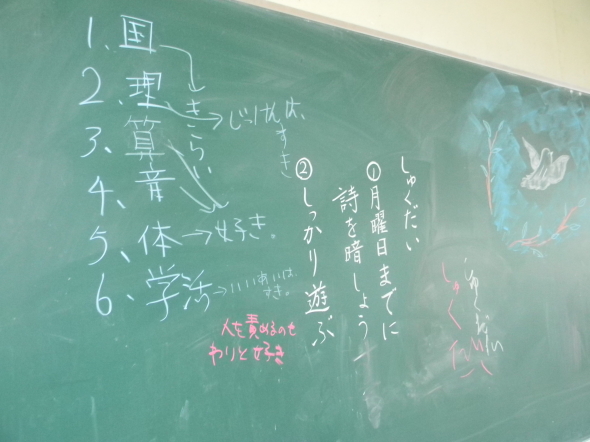 1、国
2、理
3、算
4、音
5、体→好き。
6、学活→いいあいは、
すき。
きらい
じっけんは、
すき
しゅくだい
①月曜日までに
詩を暗しょう
②しっかり遊ぶ
人を責めるのも
わりと好き
しゅくだい
しゅくだい